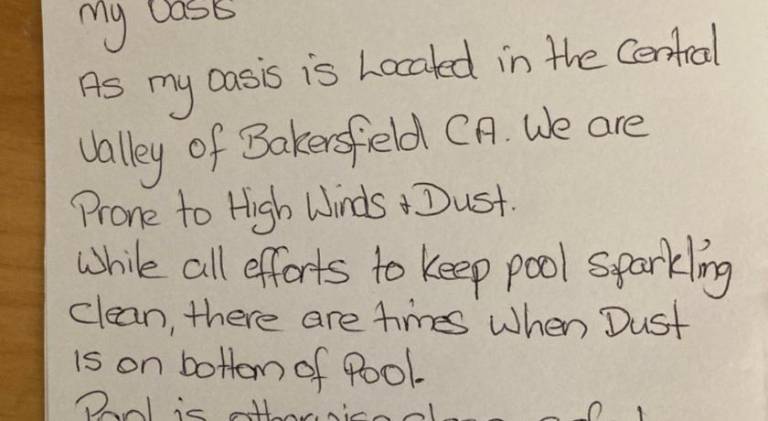 my Oasis
As my oasis is Located in the Central
Valley of Bakersfield CA. We are
Prone to High Winds + Dust.
While all efforts to keep pool sparkling
clean, there are times when Dust
is on bottom of Pool.
Pool is otherwise clean